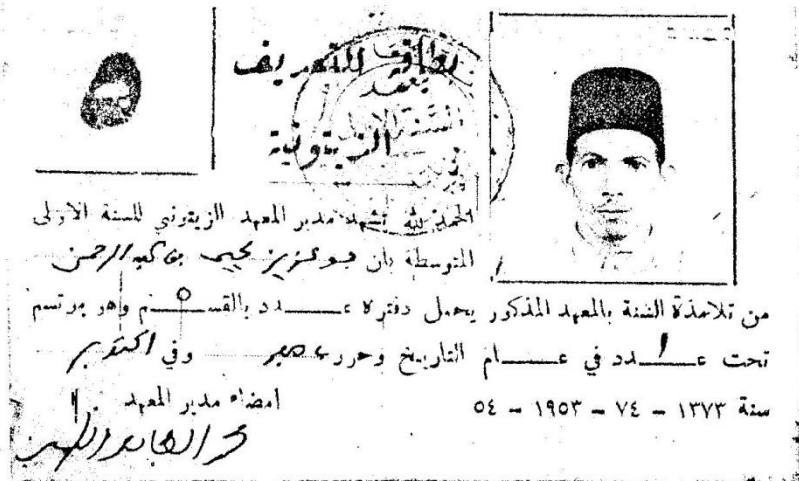 بطاقة التعريف
الزيتونية
الحمد لله تشهد مدير المعهد الزيتوني للسنة الاولى
المتوسطة بان بوعزيز يحيى بن عبد الرحمن
من تلامذة السنة بالمعهد المذكور يحمل دفتره عـــدد بالقســـم وهو مرتسم
تحت عـــدد في عـــام التاريخ وحرر في وفي اكتوبر
سنة ١٣٧٣ – ٧٤ – ١٩٥٣ – ٥٤
امضاء مدير المعهد